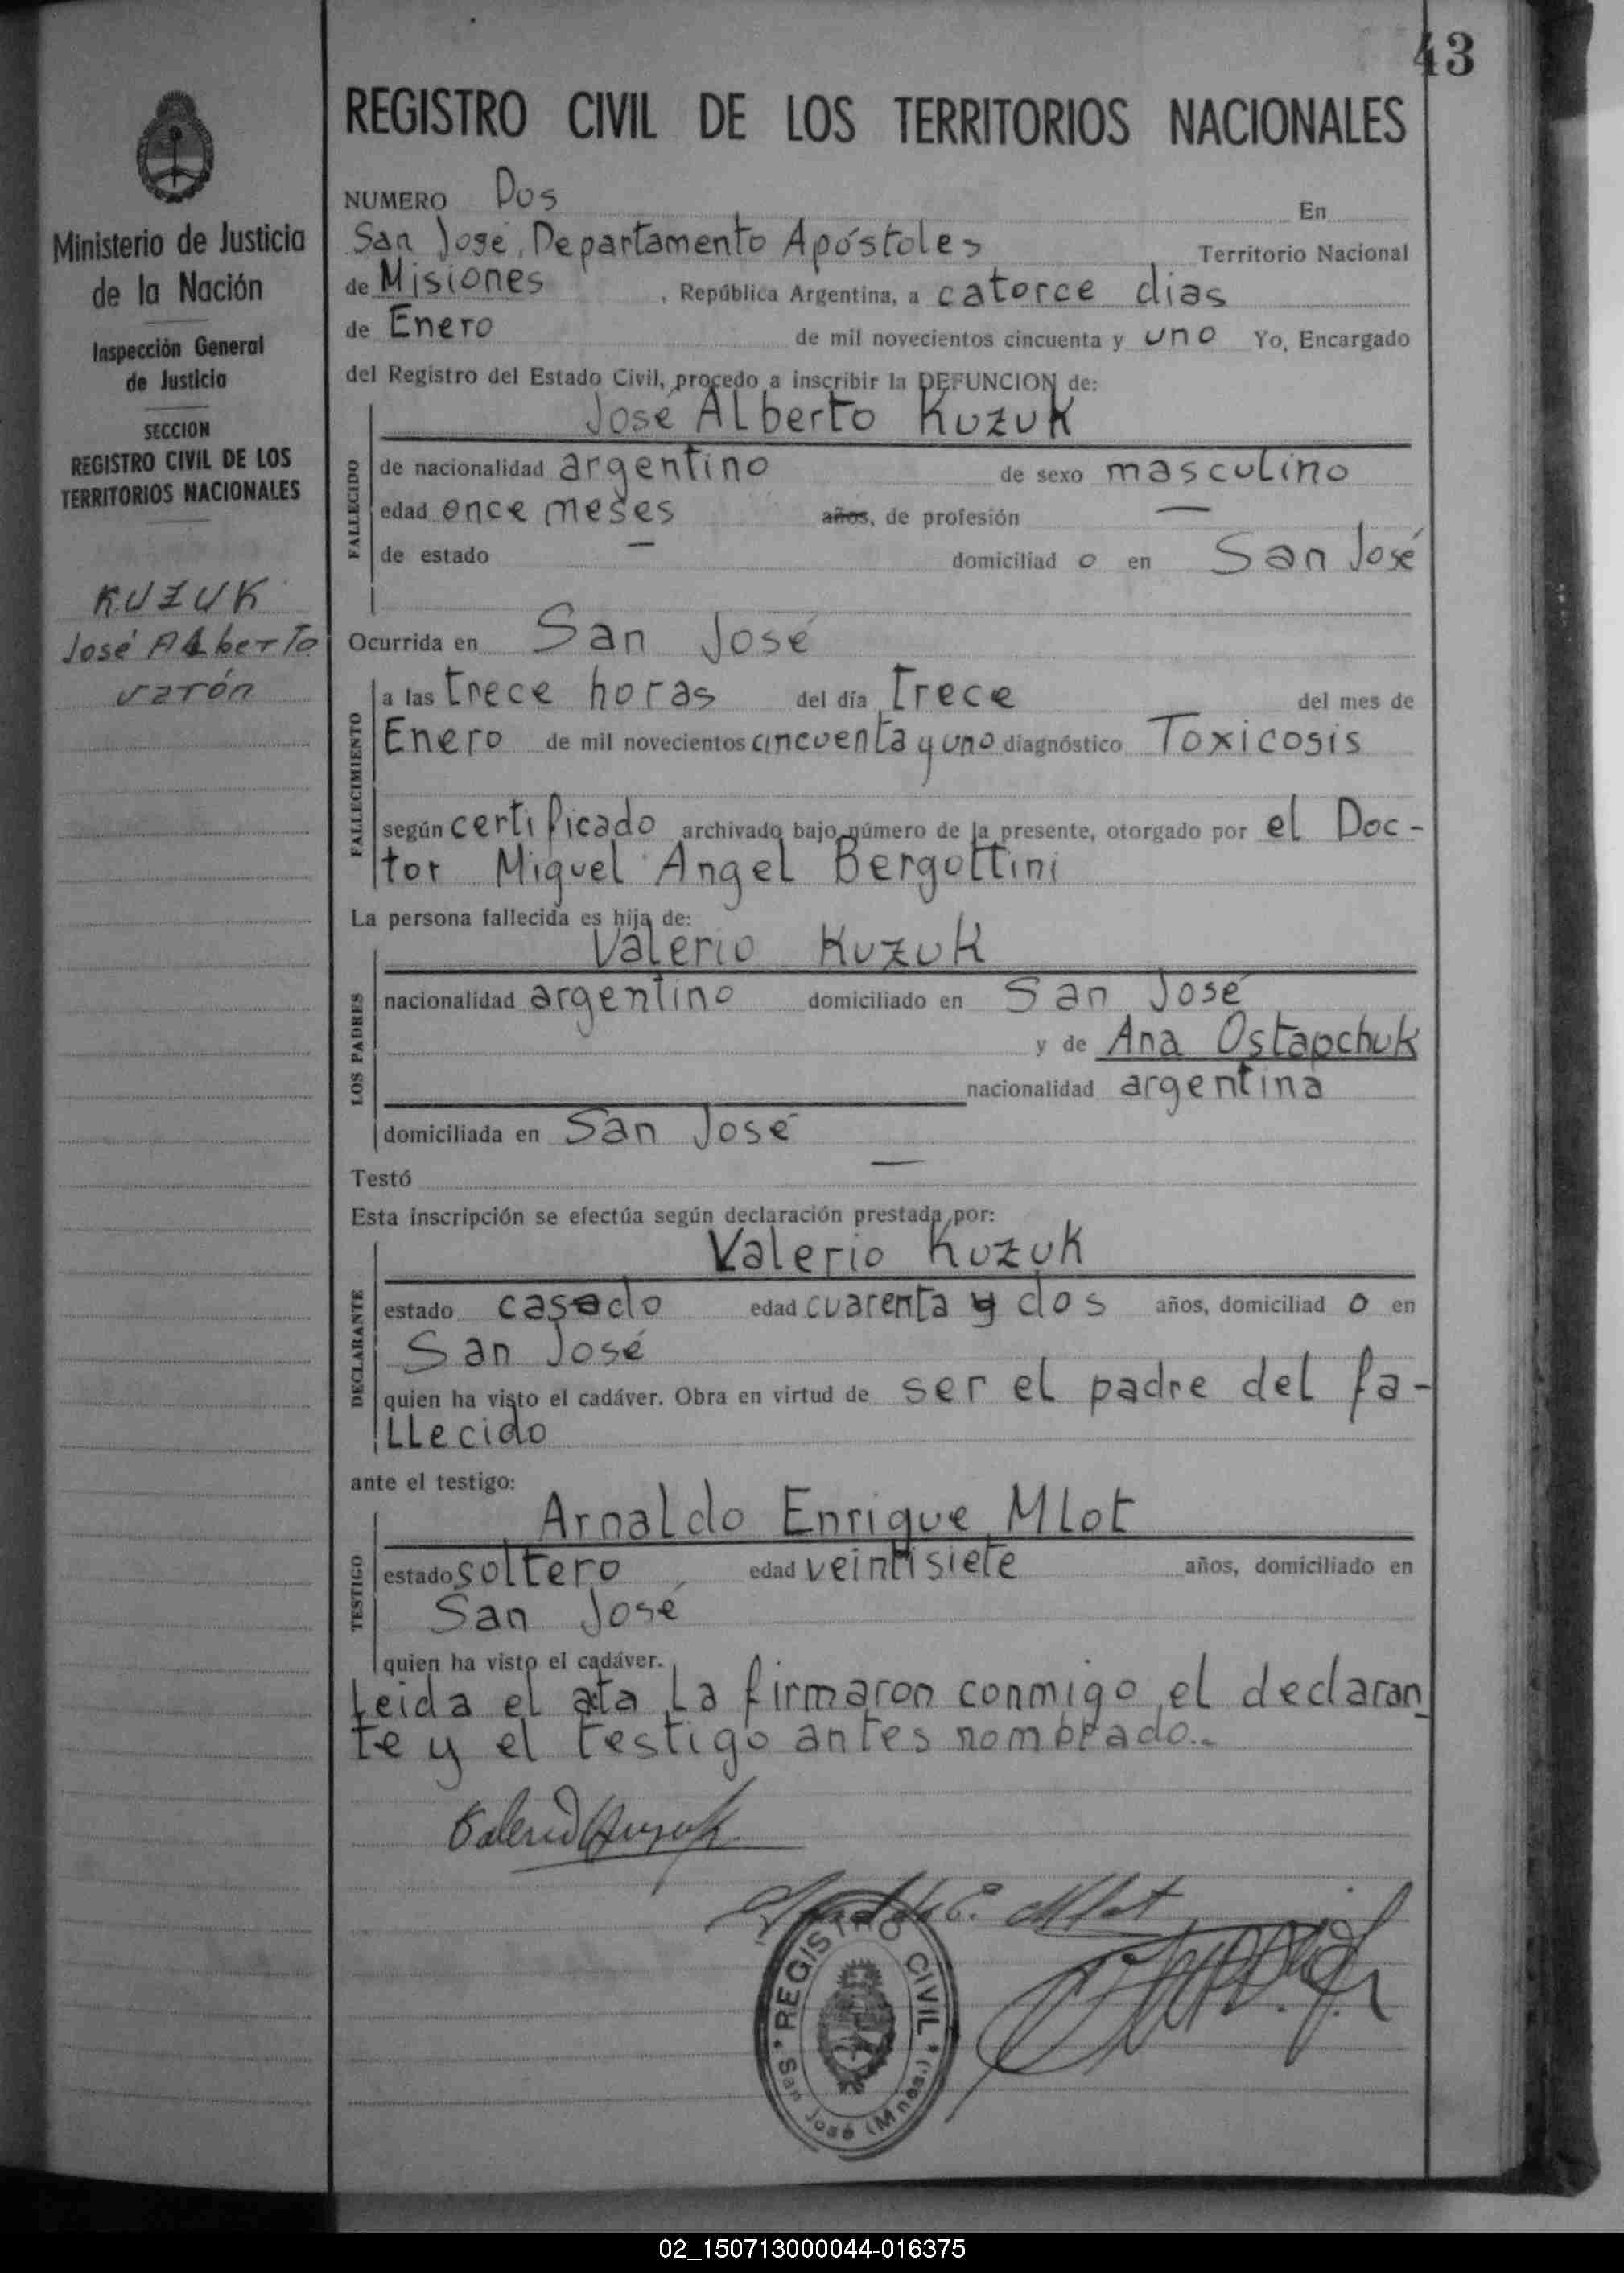 43
Ministerio de Justicia
de la Nación
Inspección General
de Justicia
SECCION
REGISTRO CIVIL DE LOS
TERRITORIOS NACIONALES
KUZUK
José ALberTo
varón
REGISTRO CIVIL DE LOS TERRITORIOS NACIONALES
NUMERO Dos En
San José, Departamento Apóstoles Territorio Nacional
de Misiones , República Argentina, a catorce dias
de Enero de mil novecientos cincuenta y uno Yo, Encargado
del Registro del Estado Civil, procedo a inscribir la DEFUNCION de:
José Alberto Kuzuk
FALLECIDO
de nacionalidad argentino de sexo masculino
edad once meses años, de profesión —
de estado — domiciliad o en San José
Ocurrida en San José
FALLECIMIENTO
a las trece horas del día trece del mes de
Enero de mil novecientos cincuenta y uno diagnóstico Toxicosis
según certificado archivado bajo número de la presente, otorgado por el Doc-
tor Miguel Angel Bergottini
La persona fallecida es hija de:
Valerio Kuzuk
LOS PADRES
nacionalidad argentino domiciliado en San José
y de Ana Ostapchuk
nacionalidad argentina
domiciliada en San José
Testó —
Esta inscripción se efectúa según declaración prestada por:
Valerio Kuzuk
DECLARANTE
estado casado edad cuarenta y dos años, domiciliad o en
San José
quien ha visto el cadáver. Obra en virtud de ser el padre del fa-
LLecido
ante el testigo:
Arnaldo Enrique Mlot
TESTIGO
estado soltero edad veintisiete años, domiciliado en
San José
quien ha visto el cadáver.
Leida el acta La firmaron conmigo el declaran
te y el testigo antes nombrado.-
Valerio Kuzuk
Arnaldo E. Mlot
REGISTRO CIVIL
San José (Mnes.)
02_150713000044-016375